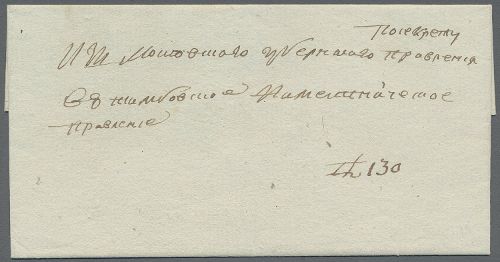 Посекрету
Из Московского губернского правления
Въ тамбовское наместническое
правление
№ 130